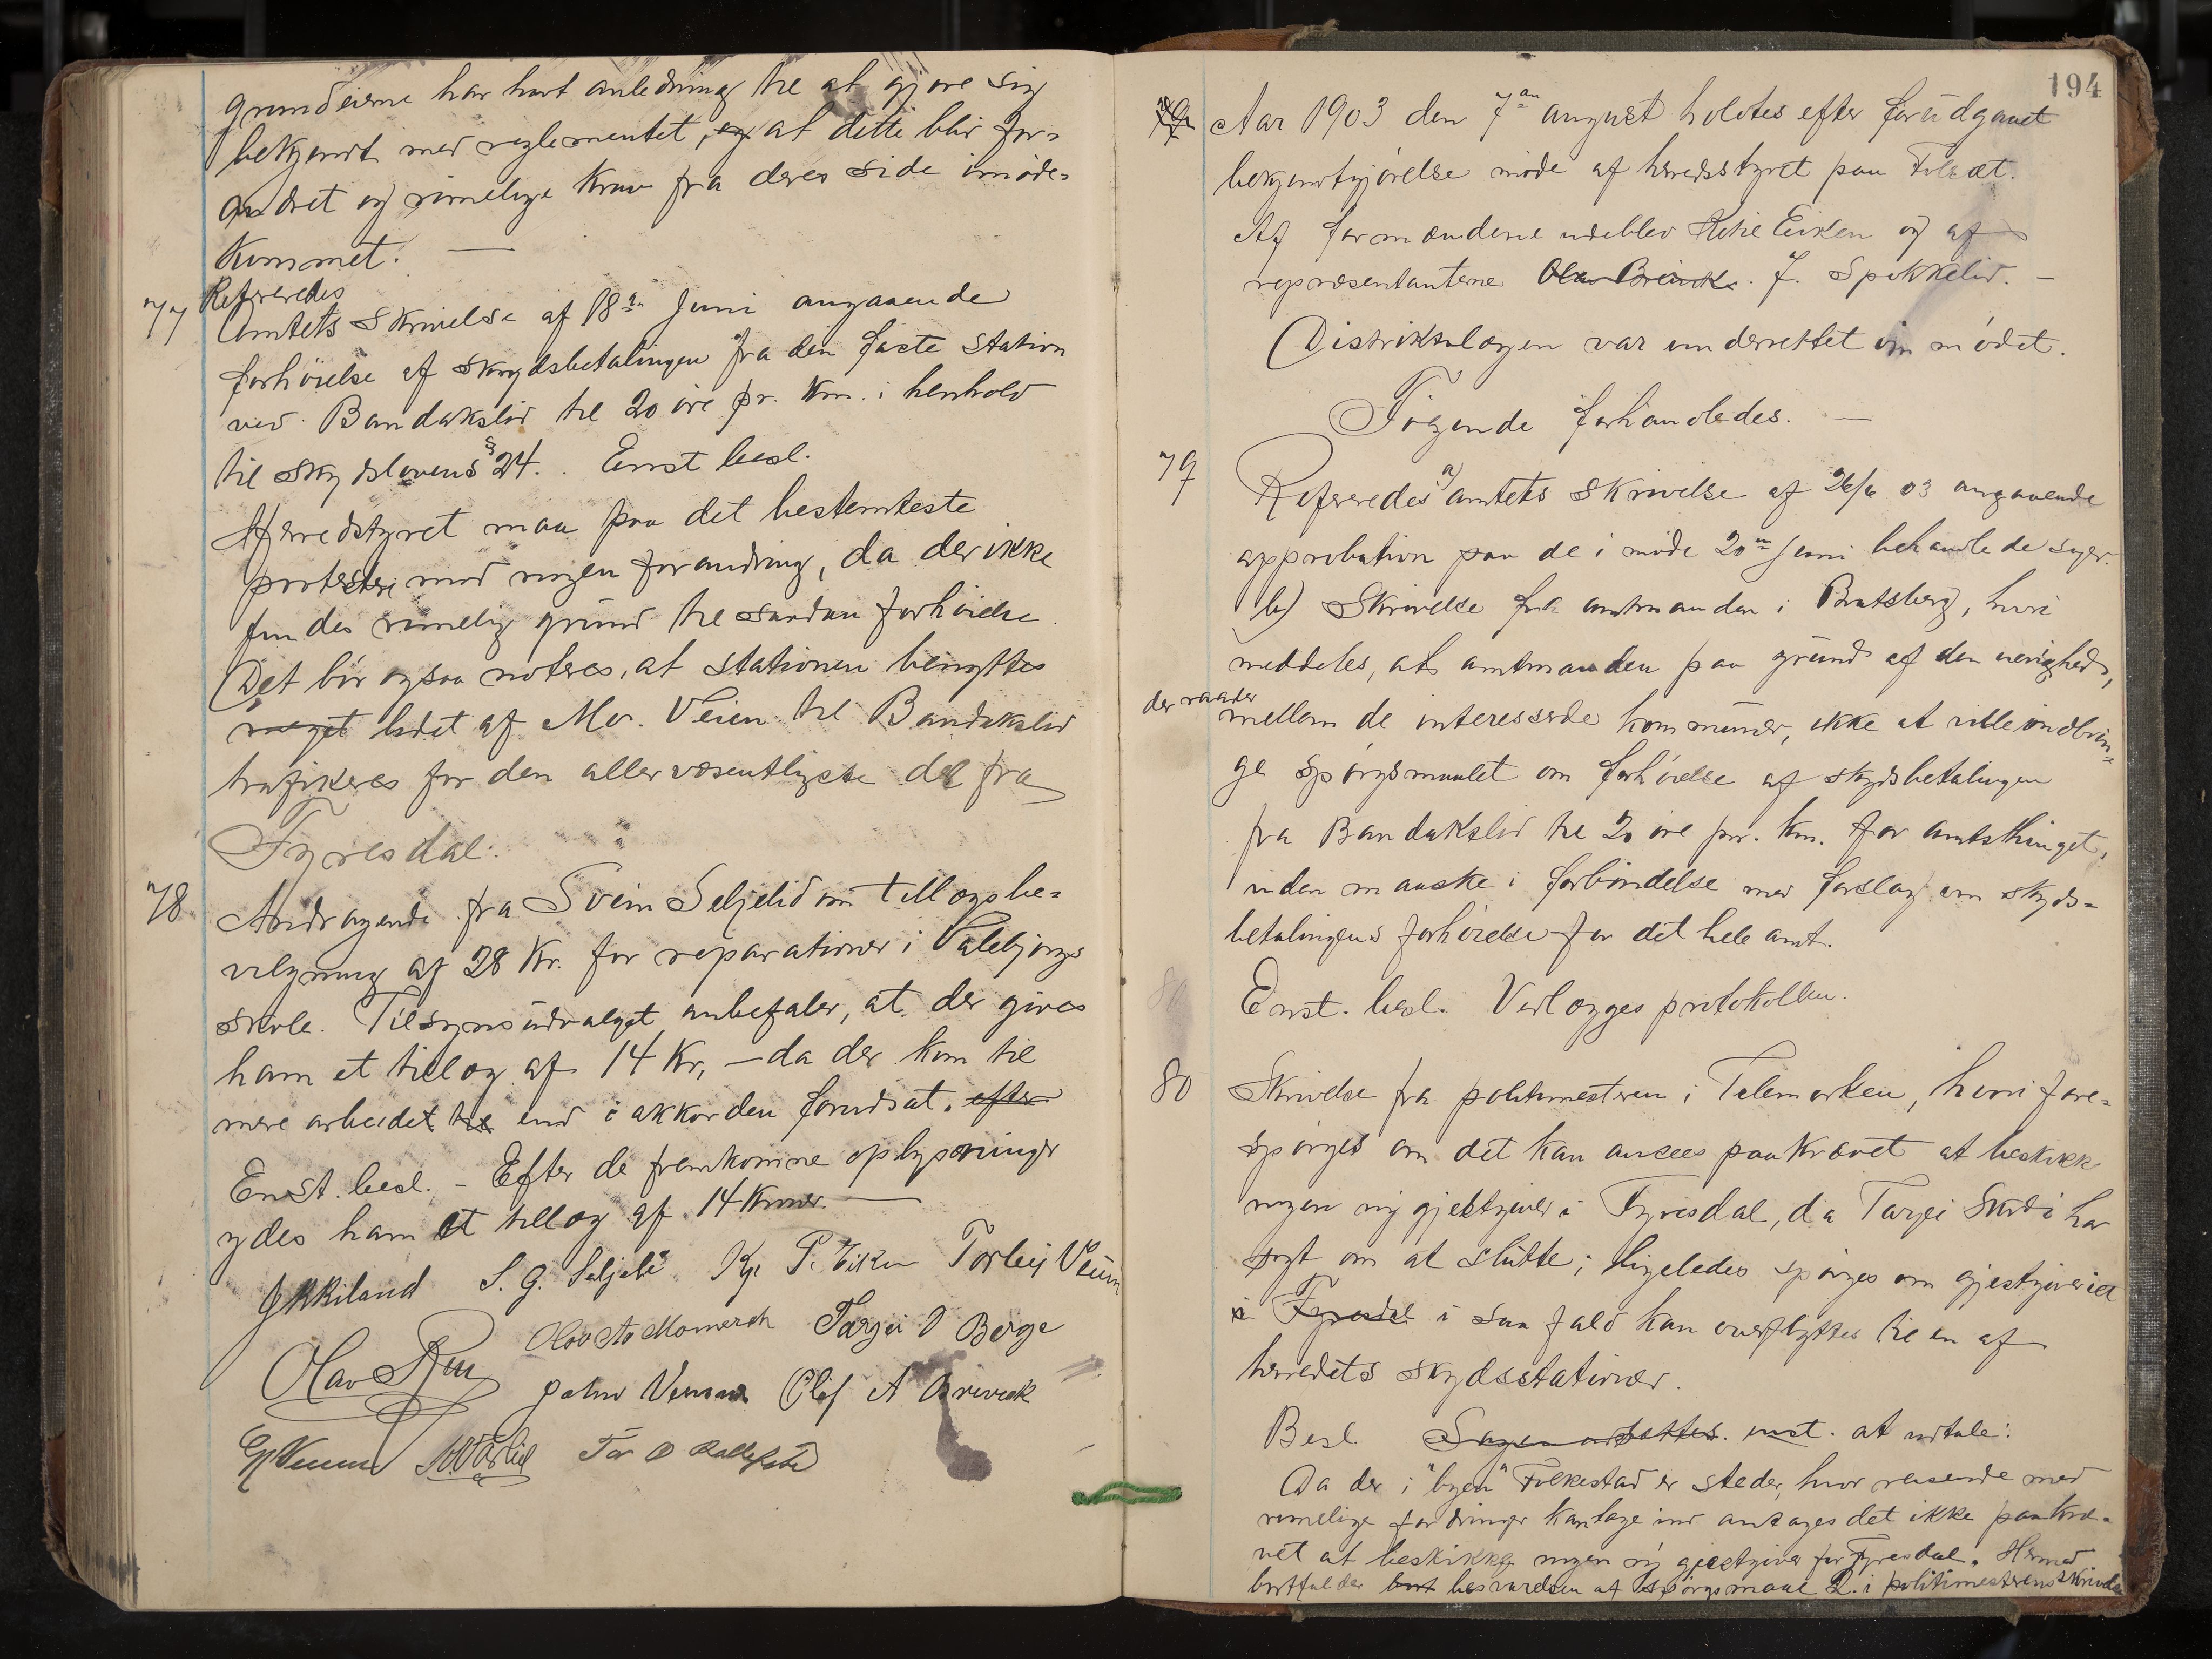 grundeierne har havt anledning til at gjøre sig
bekjendt med reglementet, og at dette blir for=
andret og rimelige krav fra deres side imøde=
kommet. —
77 Refereredes
Amtets skrivelse af 18de Juni angaaende
forhøielse af skydsbetalingen fra den faste station
ved Bandakslid til 20 øre pr. km. i henhold
til skydslovens § 24. Enst besl.
Herredstyret maa paa det bestemteste
protestere mod nogen forandring, da der ikke
findes rimelig grund til saadan forhøielse.
Det bør ogsaa noteres, at stationen benyttes
meget lidet af Mo. Veien til Bandakslid
trafikeres for den allervæsentligste del fra
Fyresdal.
78 Andragende fra Svein Seljelid om tillægsbe=
vilgning af 28 Kr. for reparationer i Valebjørgs
skole. Tilsynsudvalget anbefaler, at der gives
ham et tillæg af 14 Kr, — da der kom til
mere arbeidet til end i akkorden forudsat. efter
Enst. besl. - Efter de fremkomne oplysninger
ydes ham et tillæg af 14 Kroner. —
S. G. Seljelid Torleif Veum
Olav Momrak Targei O Berge
Olav John Veum Olaf A Breivik
Veum Tor O
194
Aar 1903 den 7de august holdtes efter forudgaaet
bekjendtgjørelse møde af herredsstyret paa Folesæt.
Af formændene udeblev Ketil Eiken og af
repræsentanterne Olav Breivik. J. Spokkelid. —
Distriktslægen var underrettet om mødet.
Følgende forhandledes. —
79 Refereredes a) amtets skrivelse af 26/6 03 angaaende
approbation paa de i møde 20de Juni behandlede sager.
b) Skrivelse fra amtmanden i Bratsberg, hvori
meddeles, at amtmanden paa grund af den uenighed,
der raader
mellem de interesserede kommuner, ikke at ville indbrin=
ge spørgsmaalet om forhøielse af skydsbetalingen
fra Bandakslid til 20 øre pr. km. for amtsthinget,
uden maaske i forbindelse med forslag om skyds=
betalingens forhøielse for det hele amt.
80 Enst. besl. Vedlægges protokollen.
80 Skrivelse fra politimesteren i Telemarken, hvori fore=
spørges om det kan ansees paakrævet at beskikke
nogen ny gjestgiver i Fyresdal, da Targei Skrdi har
søgt om at slutte; ligeledes spørges om gjestgiveriet
i Fyresdal i saa fald kan overflyttes til en af
herredets skydsstationer.
Besl. Sagen udsættes. enst. at udtale:
Da der i "byen" Folkestad er steder, hvor reisende med
rimelige fordringer kan tage ind antages det ikke paakræ=
vet at beskikke nogen ny gjestgiver for Fyresdal. Hermed
bortfalder bort besvarelsen af spørgsmaal 2. i politimesterens skrivelse